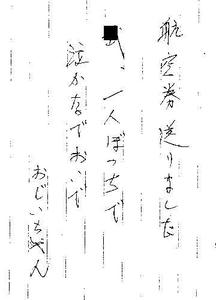 航空券送りました
一人ぼっちで
泣かないでおいで
おじいちゃん